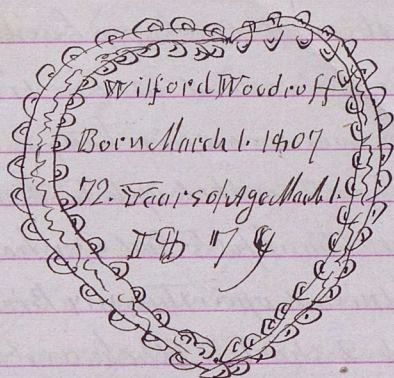 Wilford Woodruff
Born March 1. 1807
72. Years of Age March 1.
1879